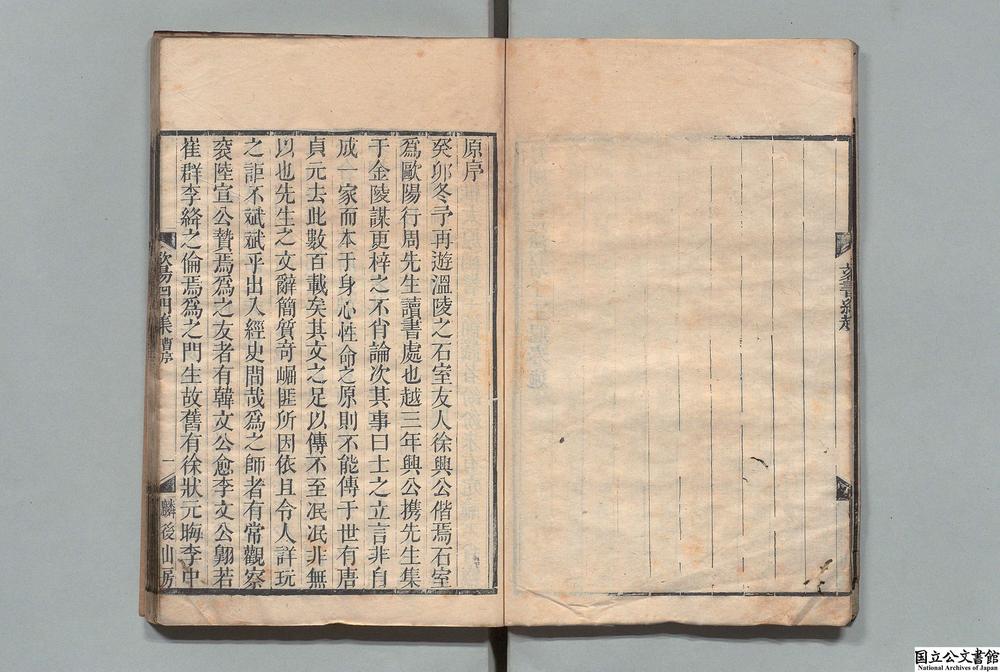 原序
癸卯冬予再遊溫陵之石室友人徐興公偕焉石室
爲歐陽行周先生讀書處也越三年興公携先生集
于金陵謀更梓之不肖論次其事曰士之立言非自
成一家而本于身心性命之原則不能傳于世有唐
貞元去此數百載矣其文之足以傳不至泯泯非無
以也先生之文辭簡質奇崛匪所因依且令人詳玩
之詎不斌斌乎出入經史間哉爲之師者有常觀察
袞陸宣公贄焉爲之友者有韓文公愈李文公翺若
崔群李絳之倫焉爲之門生故舊有徐狀元晦李中
歐陽四門集 曹序 一 麟後山房
国立公文書館
National Archives of Japan